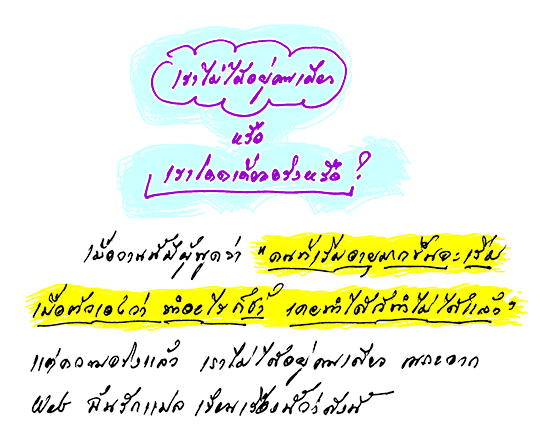 เราไม่ได้อยู่คนเดียว
หรือ
เราโดดเดี่ยวจริงหรือ ?
เมื่อวานนี้มีผู้พูดว่า "คนที่เริ่มอายุมากขึ้นจะเริ่ม
เบื่อตัวเองว่า ทำอะไรก็ช้า เคยทำได้ก็ทำไม่ได้แล้ว"
แต่ความจริงแล้ว เราไม่ได้อยู่คนเดียว เพราะจาก
Web ฉันรักแปล เขียนเรื่องนี้ว่าดังนี้